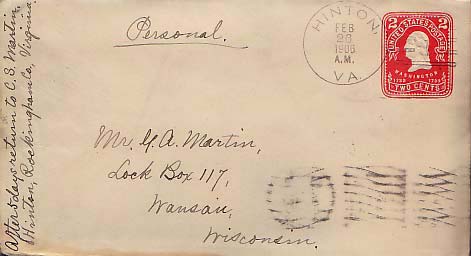 After 5 days return to C. S. Martin,
Hinton, Rockingham Co., Virginia
Personal.
HINTON,
FEB
A.M.
VA.
2 2
UNITED STATES POSTAGE
WASHINGTON
TWO CENTS
Lock Box 117,
Wausau,
Wisconsin.
Mr. G. A. Martin,